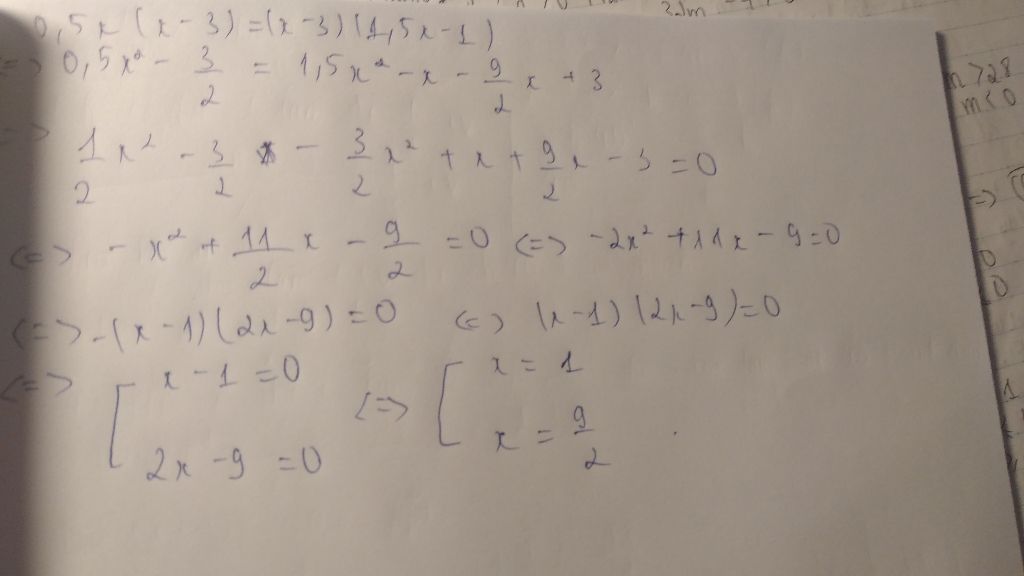 0,5x(x-3)=(x-3)(1,5x-1)
=> 0,5x² - 3/2 = 1,5x² - x - 9/2 x + 3
=> 1/2 x² - 3/2 - 3/2 x² + x + 9/2 x - 3 = 0
<=> - x² + 11/2 x - 9/2 = 0 <=> -2x² + 11x - 9 = 0
<=> -(x-1)(2x-9) = 0 <=> (x-1)(2x-9) = 0
<=> [ x - 1 = 0 <=> [ x = 1
2x - 9 = 0 x = 9/2
n > 28
m < 0
=>
0
0
1